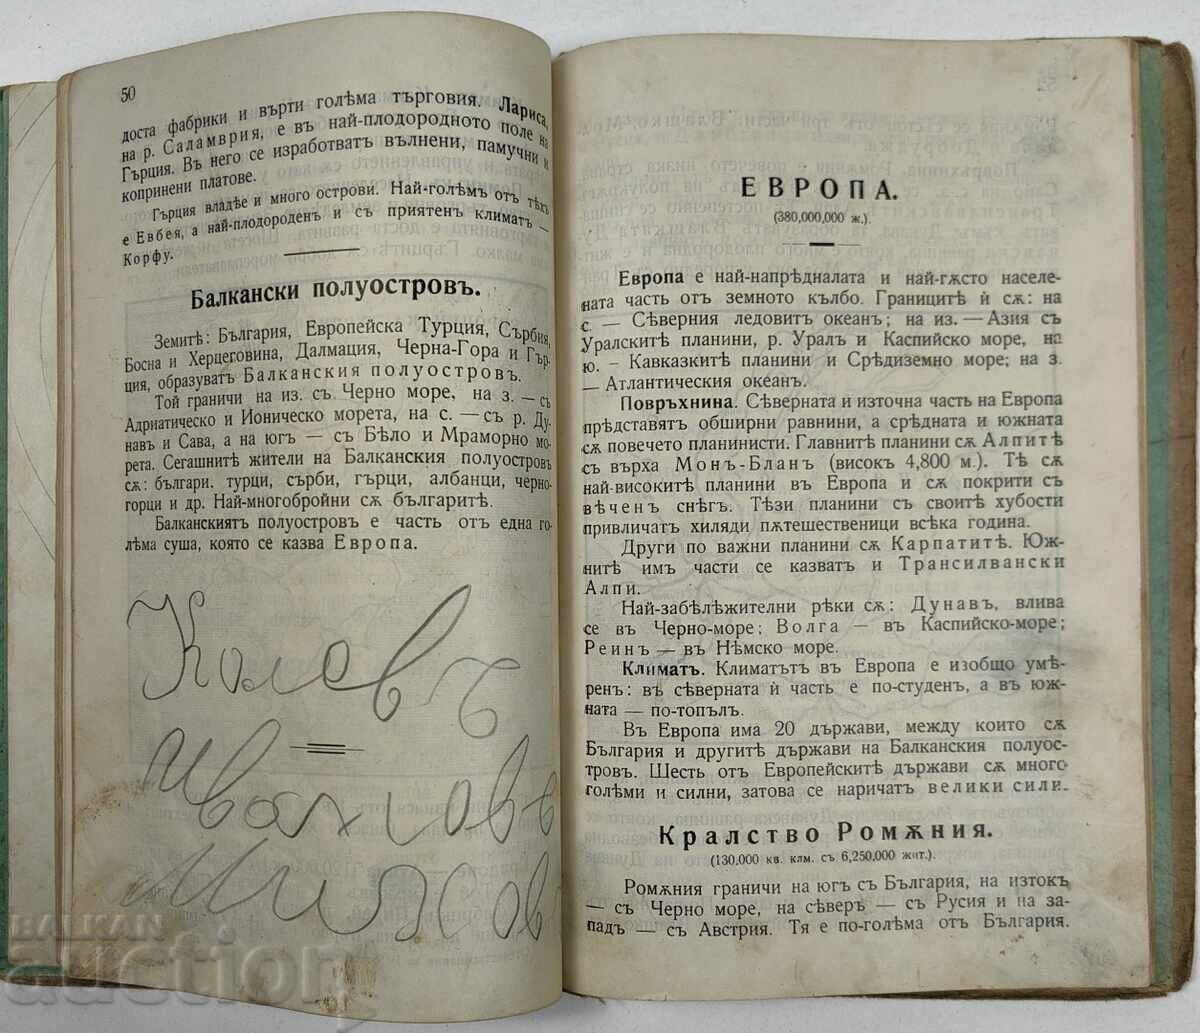 50
доста фабрики и върти голѣма търговия. Лариса,
на р. Саламврия, е въ най-плодородното поле на
Гърция. Въ него се изработватъ вълнени, памучни и
копринени платове.
Гърция владѣе и много острови. Най-голѣмъ отъ тѣхъ
е Евбея, а най-плодороденъ и съ приятенъ климатъ —
Корфу.
Балкански полуостровъ.
Земитѣ: България, Европейска Турция, Сърбия,
Босна и Херцеговина, Далмация, Черна-Гора и Гър-
ция, образуватъ Балканския полуостровъ.
Той граничи на из. съ Черно море, на з. — съ
Адриатическо и Ионическо морета, на с. — съ р. Ду-
навъ и Сава, а на югъ — съ Бѣло и Мраморно мо-
рета. Сегашнитѣ жители на Балканския полуостровъ
сѫ: българи, турци, сърби, гърци, албанци, черно-
горци и др. Най-многобройни сѫ българитѣ.
Балканскиятъ полуостровъ е часть отъ една го-
лѣма суша, която се казва Европа.
Колевъ
Ивановъ
ЕВРОПА.
(380,000,000 ж.).
Европа е най-напрѣдналата и най-гѫсто населе-
ната часть отъ земното кълбо. Границитѣ ѝ сѫ: на
с. — Сѣверния ледовитъ океанъ; на из. — Азия съ
Уралскитѣ планини, р. Уралъ и Каспийско море, на
ю. — Кавказкитѣ планини и Срѣдиземно море; на з.
— Атлантическия океанъ.
Повръхнина. Сѣверната и източна часть на Европа
прѣдставятъ обширни равнини, а срѣдната и южната
сѫ повечето планинисти. Главнитѣ планини сѫ Алпитѣ
съ върха Монъ-Бланъ (високъ 4,800 м.). Тѣ сѫ
най-високитѣ планини въ Европа и сѫ покрити съ
вѣченъ снѣгъ. Тѣзи планини съ своитѣ хубости
привличатъ хиляди пѫтешественици всѣка година.
Други по важни планини сѫ Карпатитѣ. Юж-
нитѣ имъ части се казватъ и Трансилвански
Алпи.
Най-забѣлѣжителни рѣки сѫ: Дунавъ, влива
се въ Черно-море; Волга — въ Каспийско-море;
Реинъ — въ Нѣмско море.
Климатъ. Климатътъ въ Европа е изобщо умѣ-
ренъ: въ сѣверната ѝ часть е по-студенъ, а въ юж-
ната — по-топълъ.
Въ Европа има 20 държави, между които сѫ
България и другитѣ държави на Балканския полуос-
тровъ. Шесть отъ Европейскитѣ държави сѫ много
голѣми и силни, затова се наричатъ велики сили.
Кралство Ромѫния.
(130,000 кв. клм. съ 6,250,000 жит.).
Ромѫния граничи на югъ съ България, на изтокъ
— съ Черно море, на сѣверъ — съ Русия и на за-
падъ — съ Австрия. Тя е по-голѣма отъ България.
BALKAN
auction